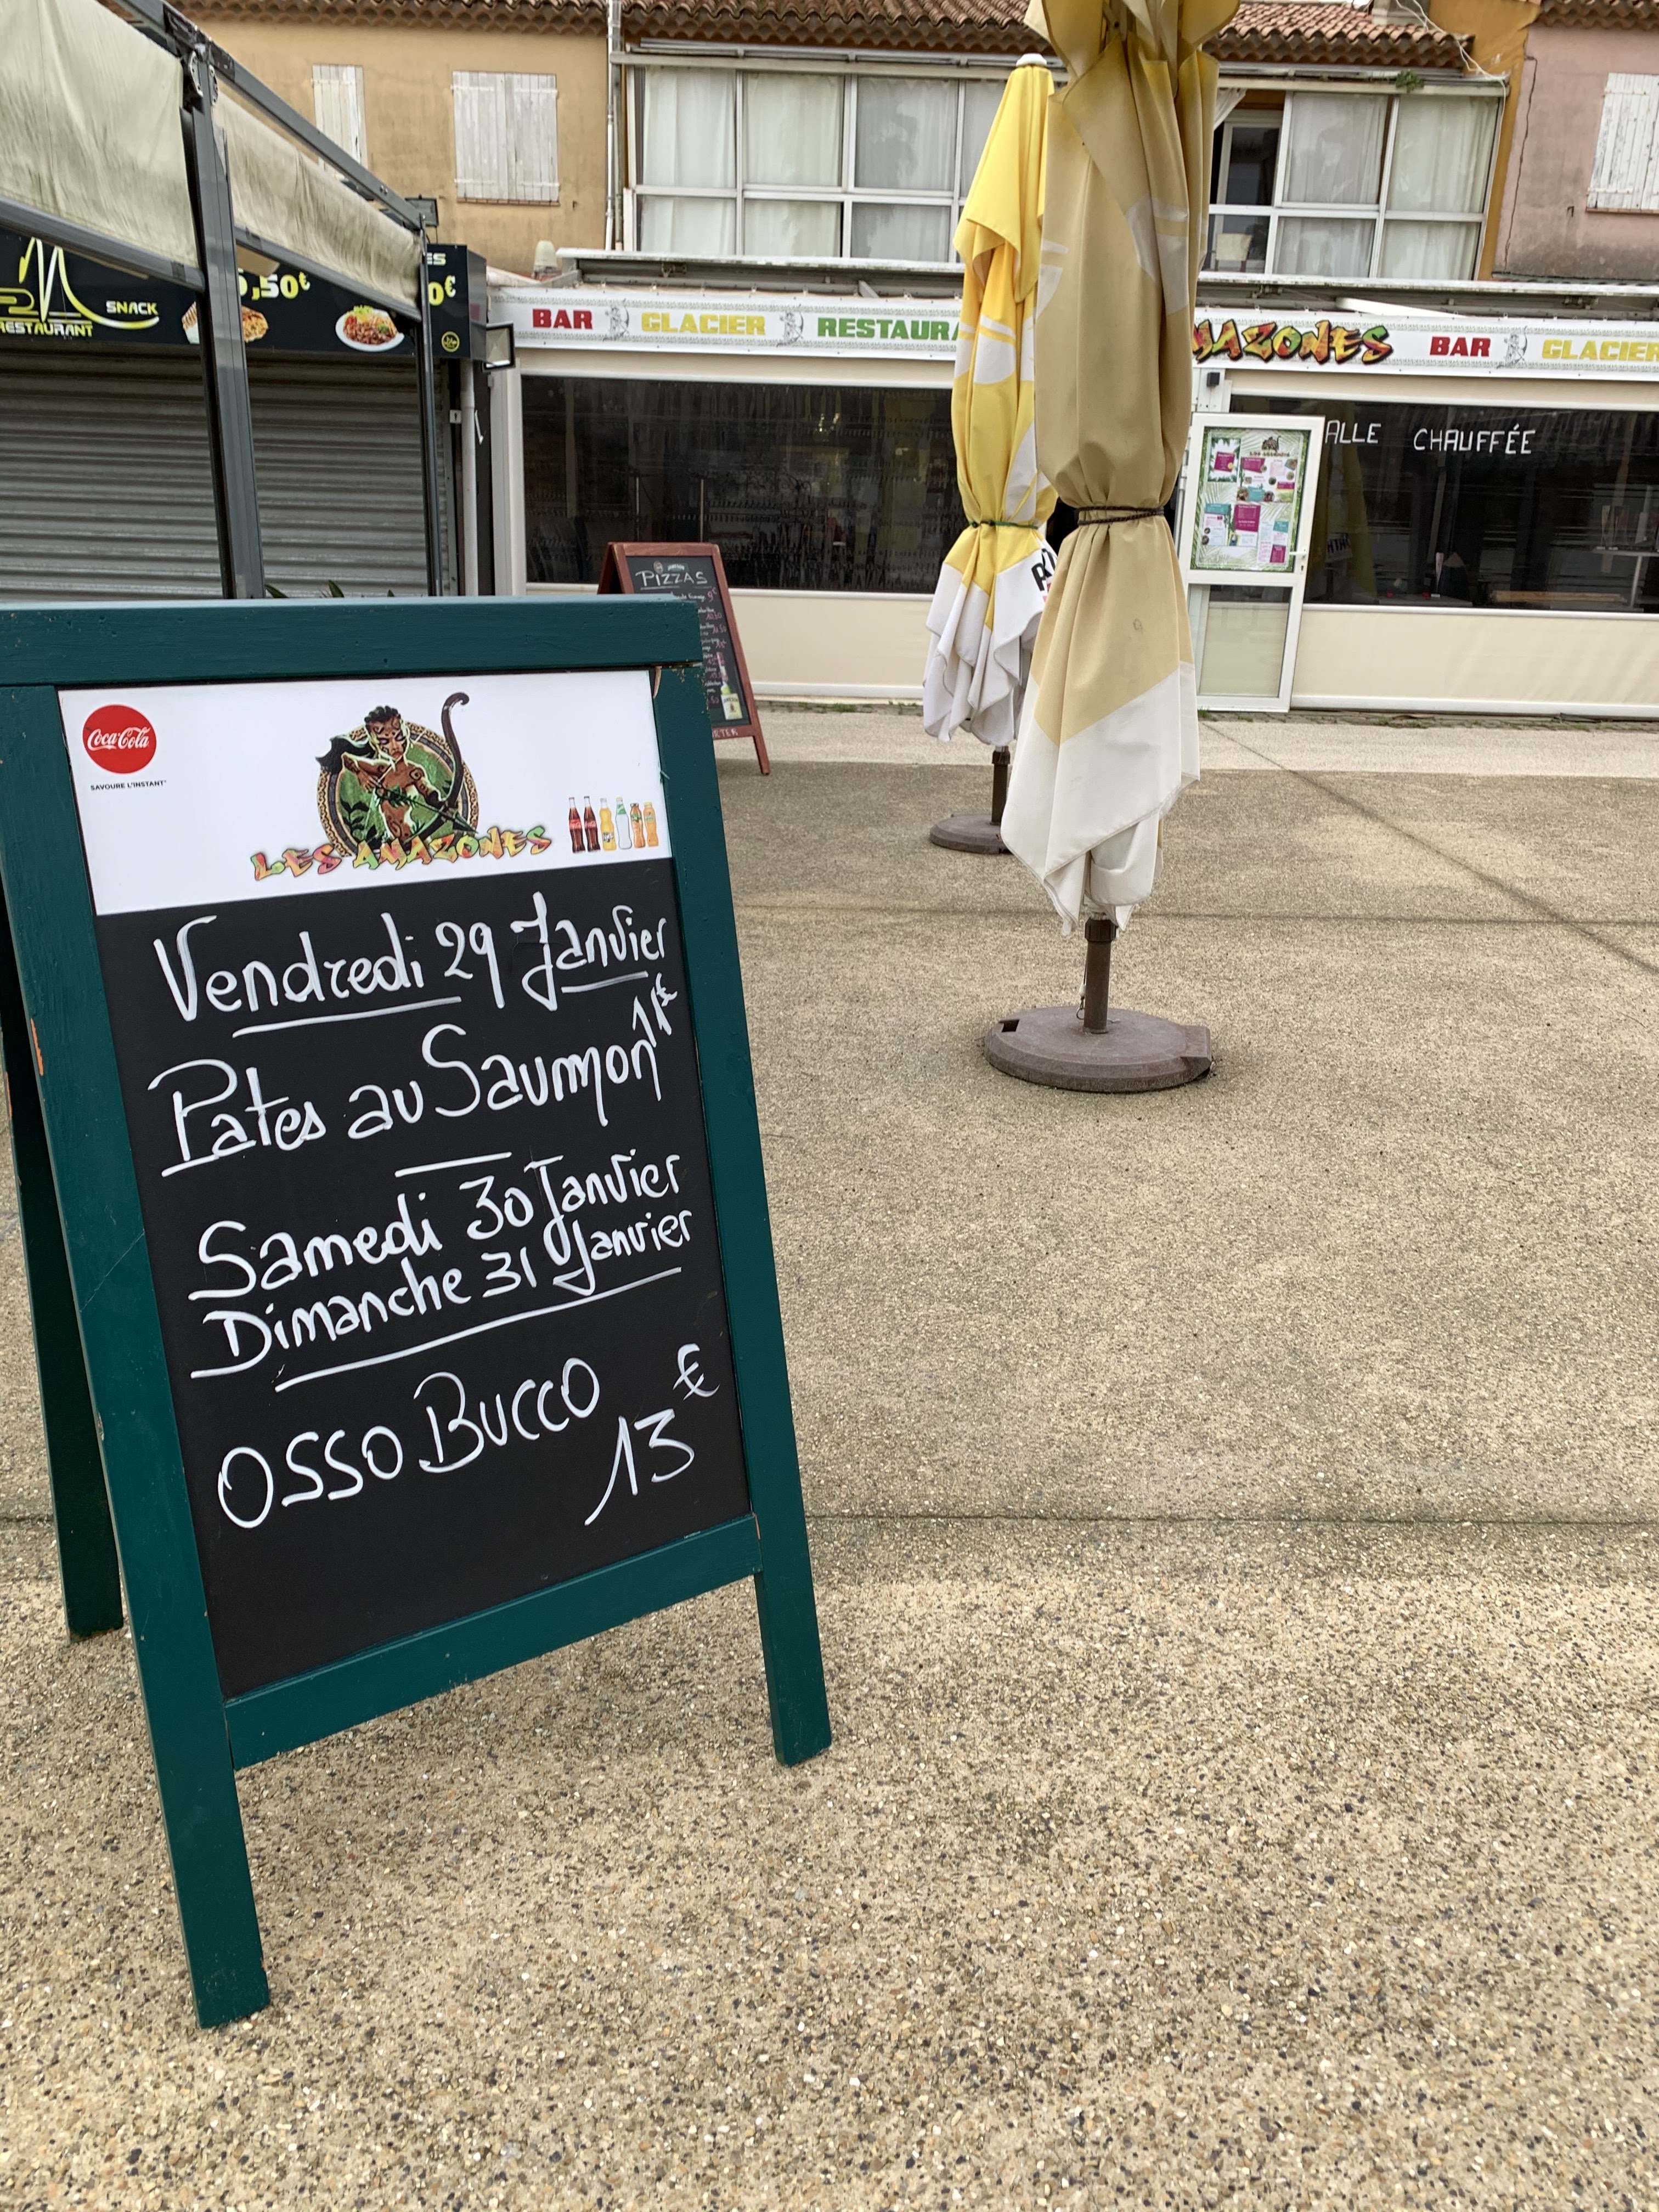 SNACK
RESTAURANT
5,50€
0€
BAR GLACIER RESTAURA
AMAZONES BAR GLACIER
ALLE CHAUFFÉE
PIZZAS
Coca-Cola
SAVOURE L'INSTANT
LES AMAZONES
Vendredi 29 Janvier
Pates au Saumon 11€
Samedi 30 Janvier
Dimanche 31 Janvier
OSSO BUCCO
13€